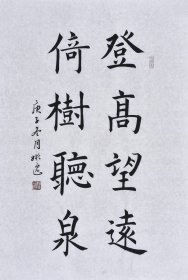 登高望遠
倚樹聽泉
庚子冬月